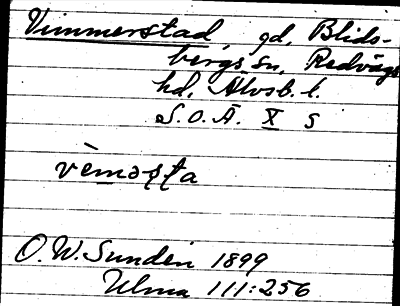 Vimmerstad gd, Blids-
bergs sn, Redvägs
hd, Älvsb. l.
S.O.Ä. X s
vèməṣṭa
O.W. Sundén 1899
Ulma 111:256